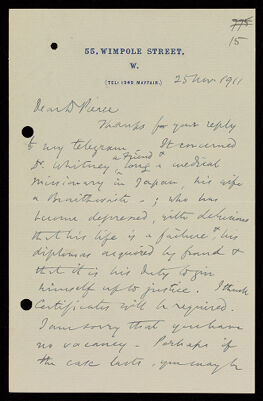 775
15
55, WIMPOLE STREET,
W.
(TEL: 1242 MAYFAIR.)
25 Nov 1911
Dear Dr Pierce
Thanks for your reply
to my telegram. It concerned
Dr Whitney a Friend & long a medical
missionary in Japan, his wife
a Braithwaite -; who has
become depressed, with delusions
that his life is a failure & his
diplomas acquired by fraud &
that it is his duty to give
himself up to justice. I think
Certificates will be required.
I am sorry that you have
no vacancy - Perhaps if
the case lasts, you may be